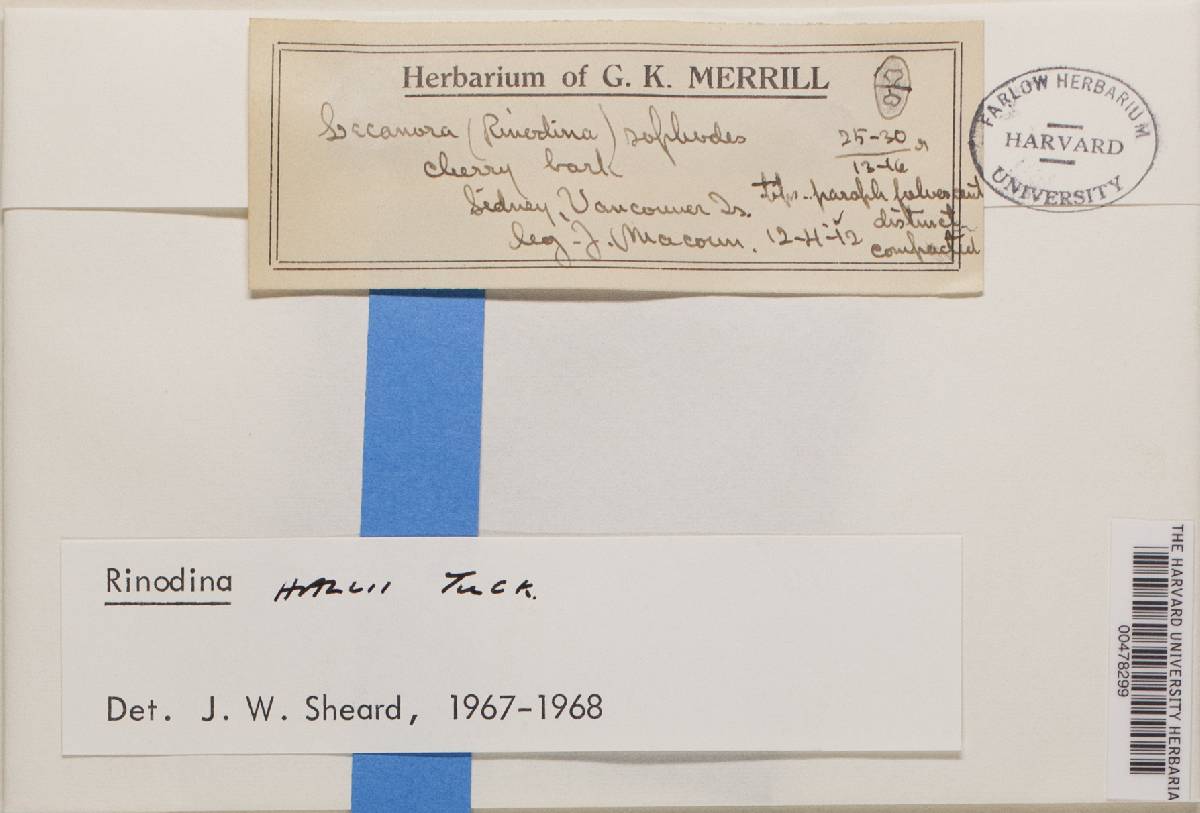 Herbarium of G. K. MERRILL
Lecanora (Rinodina) sophodes
cherry bark
Sidney, Vancouver Is.
leg. J. Macoun. 12-4-'12
25-30
13-16
paraph fulvescent
distinct
compacted
FARLOW HERBARIUM
HARVARD
UNIVERSITY
Rinodina HALLII TUCK.
Det. J. W. Sheard, 1967-1968
THE HARVARD UNIVERSITY HERBARIA
00478299